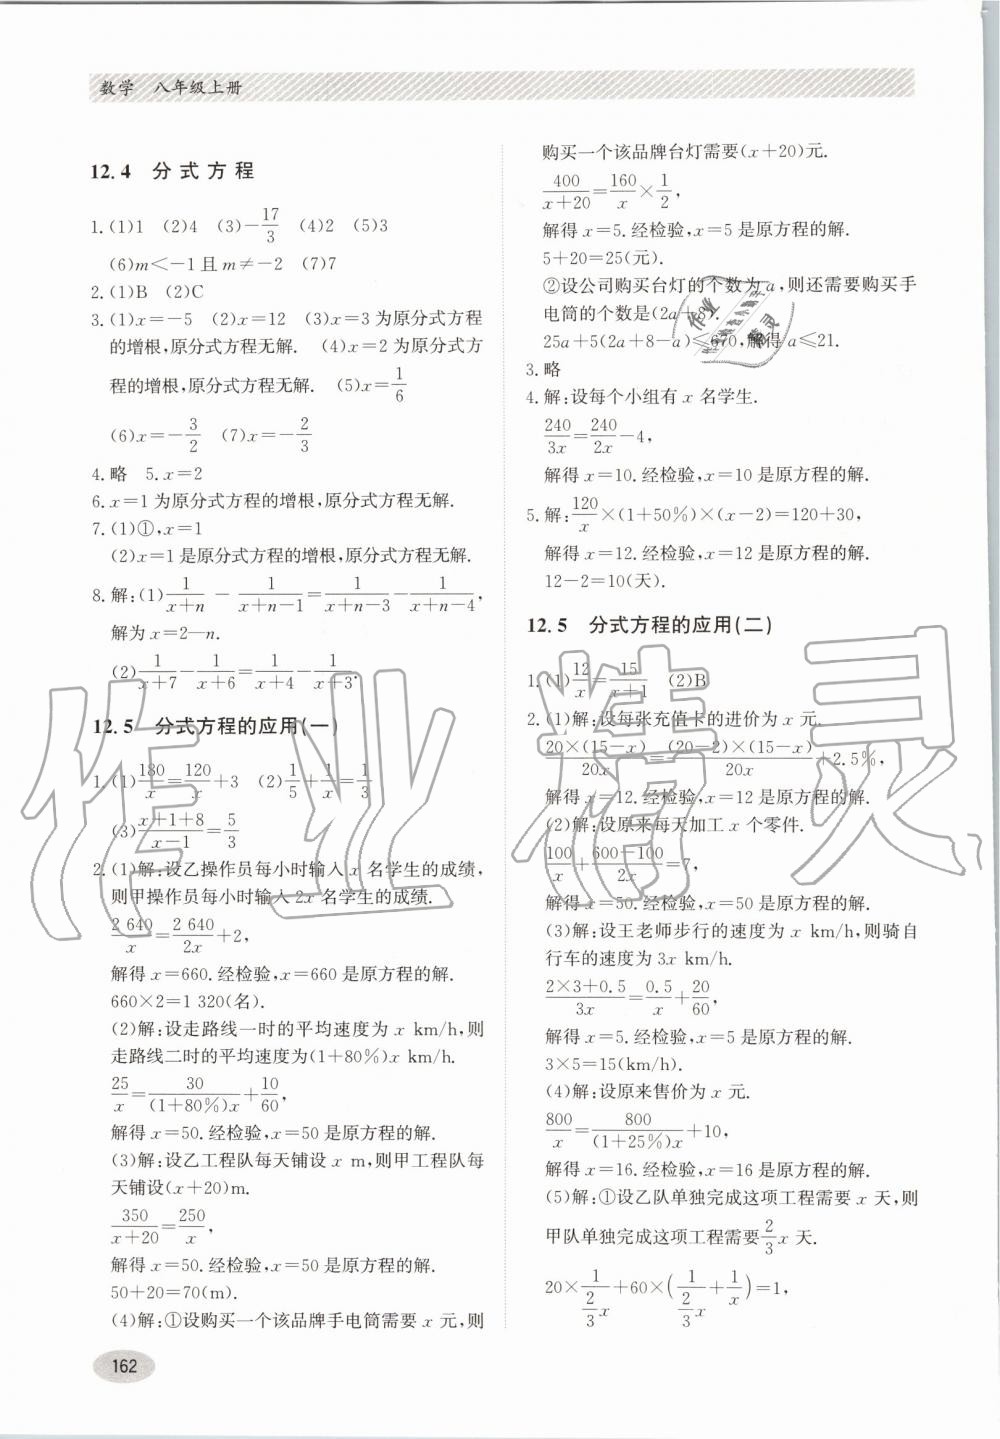 数学 八年级上册
12.4 分式方程
1.(1)1 (2)4 (3)-17/3 (4)2 (5)3
(6)m<-1且m≠-2 (7)7
2.(1)B (2)C
3.(1)x=-5 (2)x=12 (3)x=3为原分式方程
的增根,原分式方程无解. (4)x=2为原分式方
程的增根,原分式方程无解. (5)x=1/6
(6)x=-3/2 (7)x=-2/3
4.略 5.x=2
6.x=1为原分式方程的增根,原分式方程无解.
7.(1)①,x=1
(2)x=1是原分式方程的增根,原分式方程无解.
8.解:(1)1/(x+n) - 1/(x+n-1)=1/(x+n-3)-1/(x+n-4),
解为x=2-n.
(2)1/(x+7)-1/(x+6)=1/(x+4)-1/(x+3).
12.5 分式方程的应用(一)
1.(1)180/x=120/x+3 (2)1/5+1/x=1/3
(3)(x+1+8)/(x-1)=5/3
2.(1)解:设乙操作员每小时输入x名学生的成绩,
则甲操作员每小时输入2x名学生的成绩.
2 640/x=2 640/2x+2,
解得x=660.经检验,x=660是原方程的解.
660×2=1 320(名).
(2)解:设走路线一时的平均速度为x km/h,则
走路线二时的平均速度为(1+80%)x km/h.
25/x=30/((1+80%)x)+10/60,
解得x=50.经检验,x=50是原方程的解.
(3)解:设乙工程队每天铺设x m,则甲工程队每
天铺设(x+20)m.
350/(x+20)=250/x,
解得x=50.经检验,x=50是原方程的解.
50+20=70(m).
(4)解:①设购买一个该品牌手电筒需要x元,则
162
购买一个该品牌台灯需要(x+20)元.
400/(x+20)=160/x×1/2,
解得x=5.经检验,x=5是原方程的解.
5+20=25(元).
②设公司购买台灯的个数为a,则还需要购买手
电筒的个数是(2a+8).
25a+5(2a+8-a)≤670,解得a≤21.
3.略
4.解:设每个小组有x名学生.
240/3x=240/2x-4,
解得x=10.经检验,x=10是原方程的解.
5.解:120/x×(1+50%)×(x-2)=120+30,
解得x=12.经检验,x=12是原方程的解.
12-2=10(天).
12.5 分式方程的应用(二)
1.(1)12/x=15/(x+1) (2)B
2.(1)解:设每张充值卡的进价为x元.
20×(15-x)/20x=(20-2)×(15-x)/20x+2.5%,
解得x=12.经检验,x=12是原方程的解.
(2)解:设原来每天加工x个零件.
100/x+(600-100)/2x=7,
解得x=50.经检验,x=50是原方程的解.
(3)解:设王老师步行的速度为x km/h,则骑自
行车的速度为3x km/h.
(2×3+0.5)/3x=0.5/x+20/60,
解得x=5.经检验,x=5是原方程的解.
3×5=15(km/h).
(4)解:设原来售价为x元.
800/x=800/((1+25%)x)+10,
解得x=16.经检验,x=16是原方程的解.
(5)解:①设乙队单独完成这项工程需要x天,则
甲队单独完成这项工程需要2/3x天.
20×1/(2/3x)+60×(1/(2/3x)+1/x)=1,
作业精灵